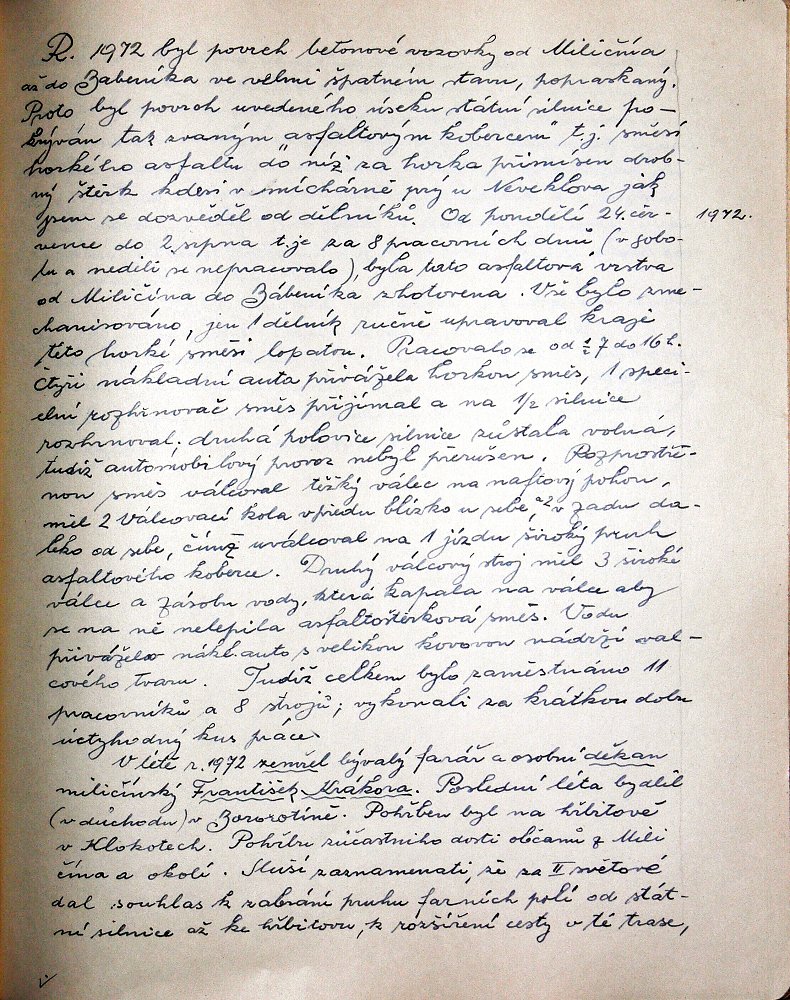 R. 1972 byl povrch betonové vozovky od Miličína
až do Zábeníka ve velmi špatném stavu, popraskaný.
Proto byl povrch uvedeného úseku státní silnice po-
krýván tak zvaným „asfaltovým kobercem" t.j. směsí
horkého asfaltu do níž za horka přimísen drob-
ný štěrk kdesi v smíchárně prý u Neveklova jak
jsem se dozvěděl od dělníků. Od pondělí 24. čer-
vence do 2. srpna t.j.e za 8 pracovních dnů (v sobo-
1972.
tu a neděli se nepracovalo), byla tato asfaltová vrstva
od Miličína do Zábeníka zhotovena. Vše bylo zme-
chanisováno, jen 1 dělník ručně upravoval kraje
této horké směsi lopatou. Pracovalo se od ½ 7 do 16 h.
Čtyři nákladní auta přivážela horkou směs, 1 speci-
elní rozhrnovač směs přijímal a na 1/2 silnice
rozhrnoval; druhá polovice silnice zůstala volná,
tudíž automobilový provoz nebyl přerušen. Rozprostře-
nou směs válcoval těžký válec na naftový pohon,
měl 2 válcovací kola vpředu blízko u sebe, a 2 v zadu da-
leko od sebe, čímž uválcoval na 1 jízdu široký pruh
asfaltového koberce. Druhý válcový stroj měl 3 široké
válce a zásobu vody, která kapala na válce aby
se na ně nelepila asfaltoštěrková směs. Vodu
přivážělo nákl. auto s velikou kovovou nádrží vál-
cového tvaru. Tudíž celkem bylo zaměstnáno 11
pracovníků a 8 strojů; vykonali za krátkou dobu
úctyhodný kus práce.
V létě r. 1972 zemřel bývalý farář a osobní děkan
miličínský František Krákora. Poslední léta bydlil
(v důchodu) v Borotíně. Pohřben byl na hřbitově
v Klokotech. Pohřbu zúčastnilo dosti občanů z Mili
čína a okolí. Sluší zaznamenati, že za II světové
dal souhlas k zabrání pruhu farních polí od stát-
ní silnice až ke hřbitovu, k rozšíření cesty v té trase,